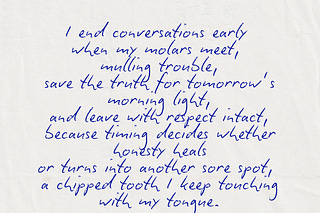 I end conversations early
when my molars meet,
mulling trouble,
save the truth for tomorrow's
morning light,
and leave with respect intact,
because timing decides whether
honesty heals
or turns into another sore spot,
a chipped tooth I keep touching
with my tongue.